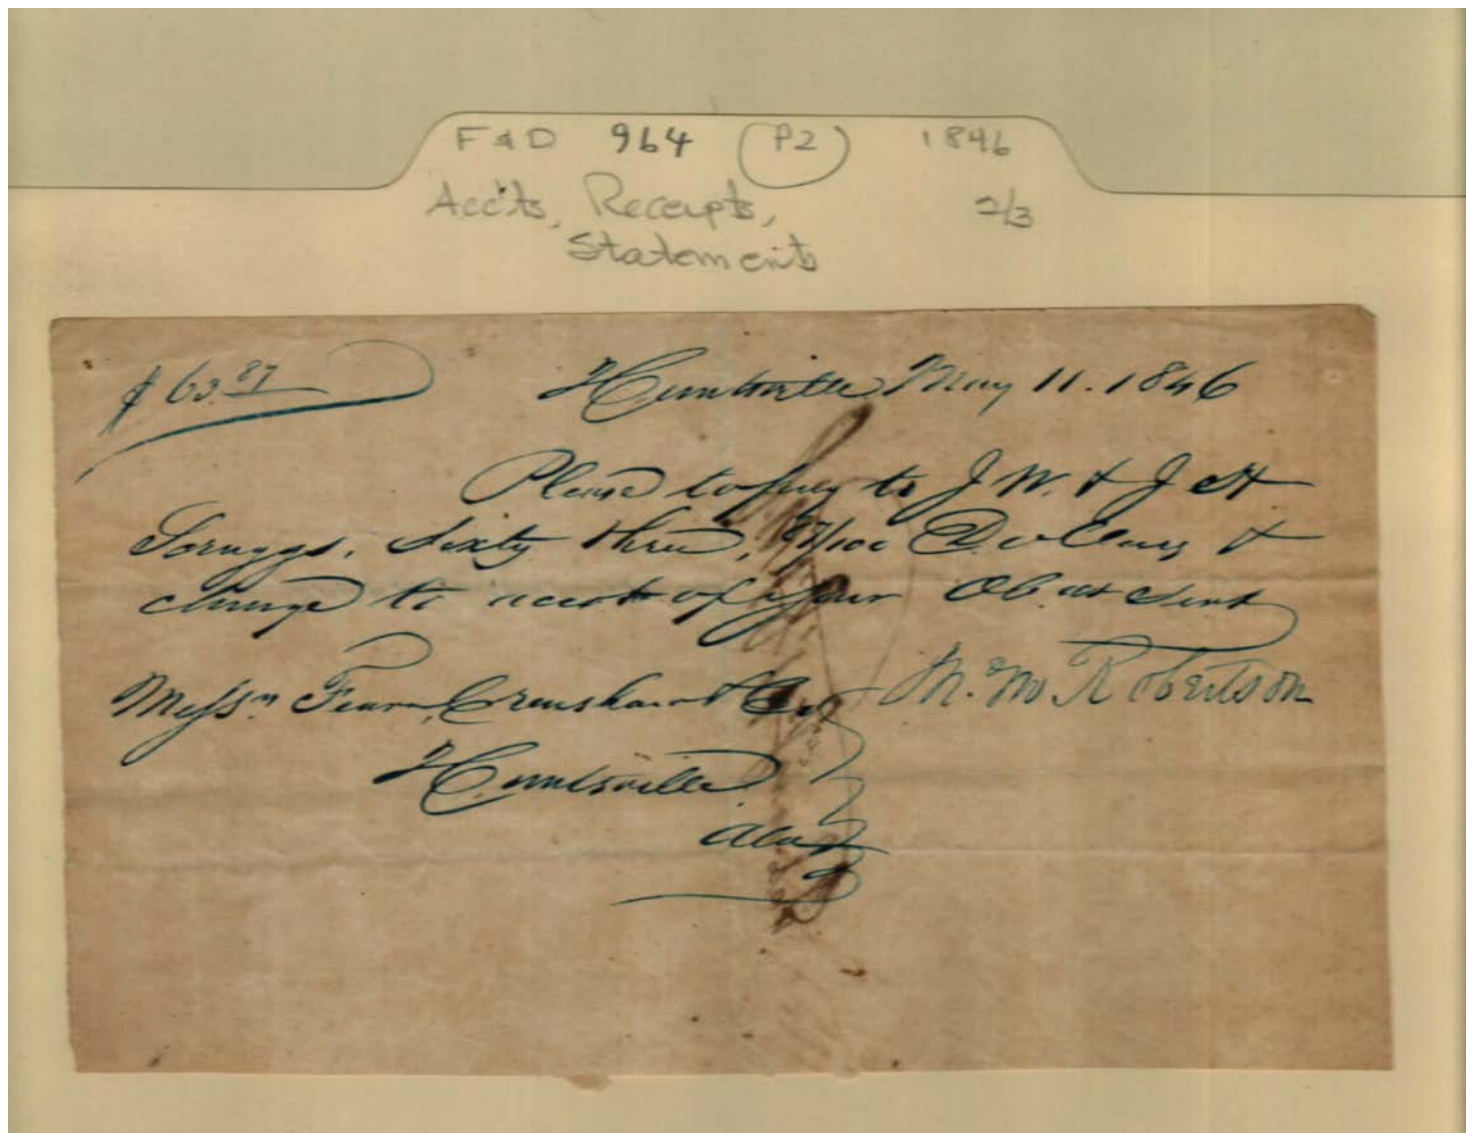 F & D 964 (P2) 1846
Acc'ts, Receipts, 2/3
Statements
$63.87 Huntsville May 11. 1846
Please to pay to J W. & J H
Scruggs, Sixty three, 87/100 Dollars &
charge to acct of your Ob. at Servt
Messrs Fearn, Crenshaw & Co M. M Robertson
Huntsville
Ala